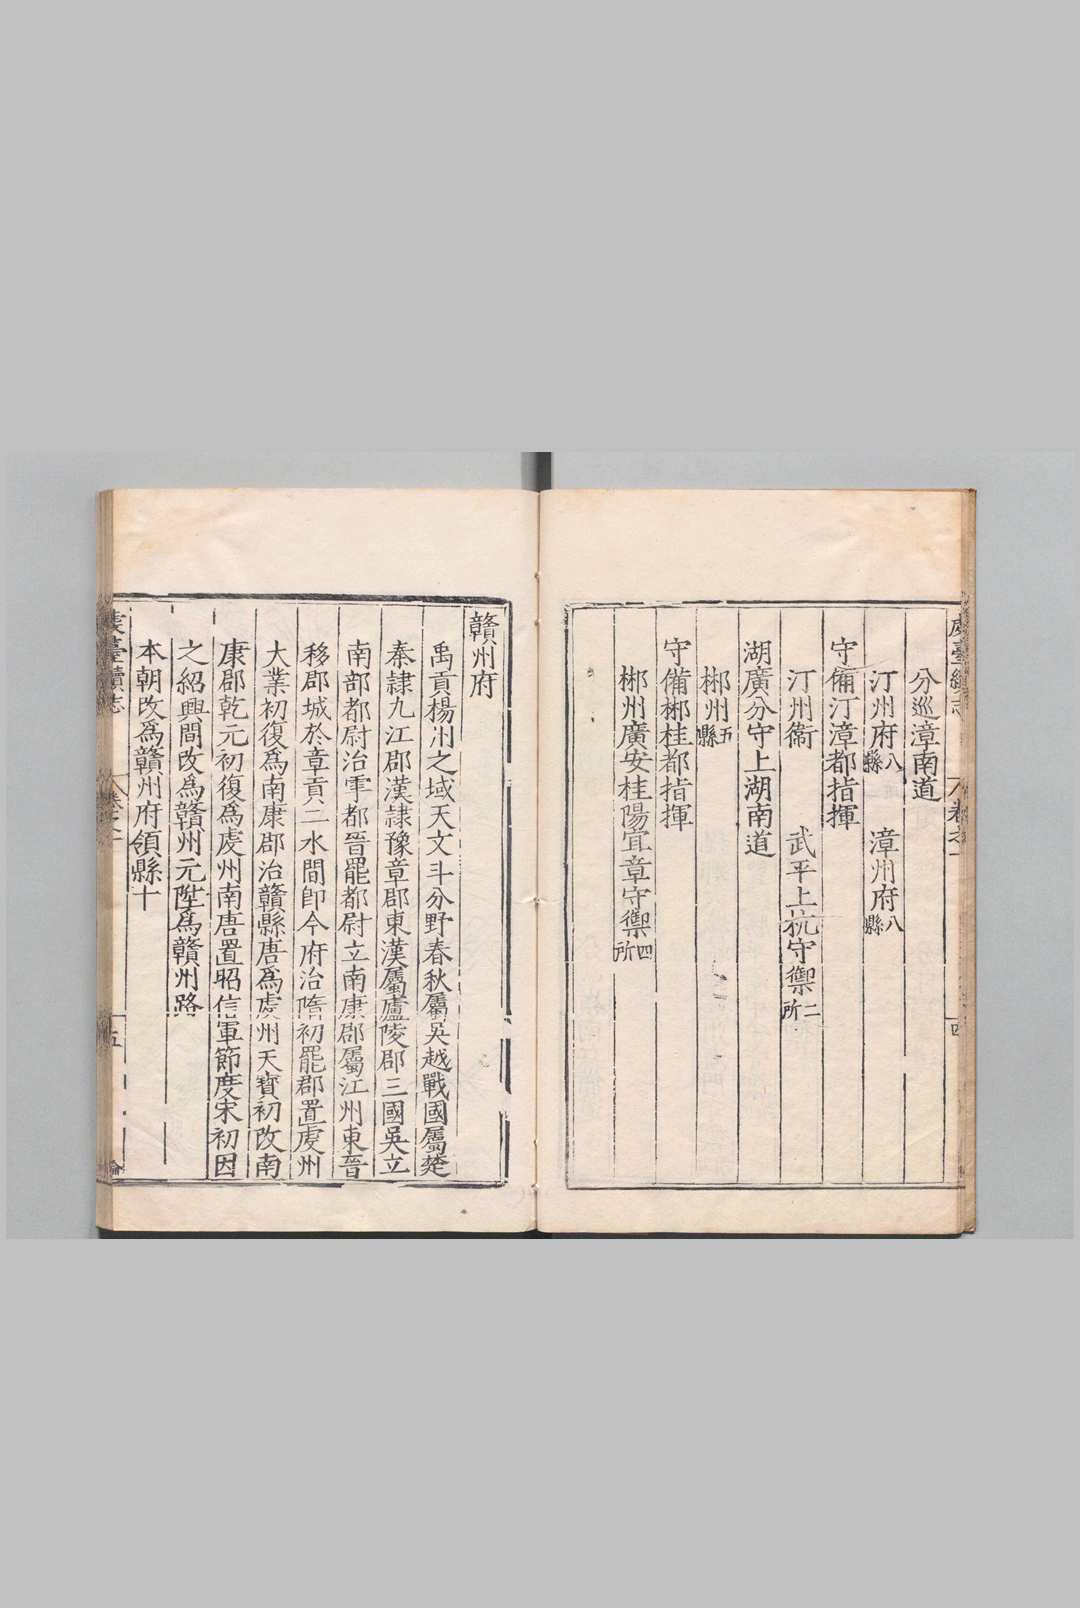 分巡漳南道
汀州府八縣 漳州府八縣
守備汀漳都指揮
汀州衞 武平上杭守禦二所
湖廣分守上湖南道
郴州五縣
守備郴桂都指揮
郴州廣安桂陽宜章守禦四所
四
贛州府
禹貢楊州之域天文斗分野春秋屬吳越戰國屬楚
秦隷九江郡漢隷豫章郡東漢屬廬陵郡三國吳立
南部都尉治雩都晉罷都尉立南康郡屬江州東晉
移郡城於章貢二水間卽今府治隋初罷郡置虔州
大業初復爲南康郡治贛縣唐爲虔州天寳初改南
康郡乾元初復爲虔州南唐置昭信軍節度宋初因
之紹興間改爲贛州元陞爲贛州路
本朝改爲贛州府領縣十
虔臺續志 卷之一 五